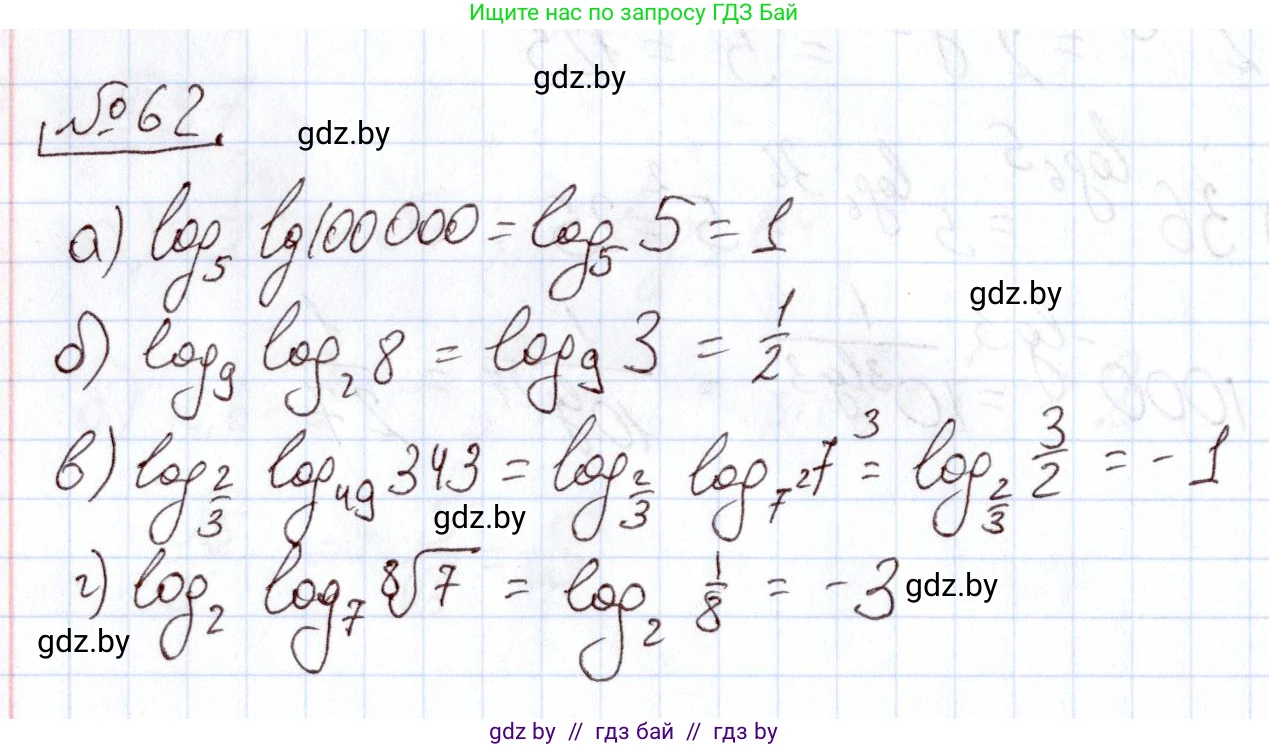 Ищите нас по запросу ГДЗ Бай
gdz.by
№ 62.
gdz.by
а) log₅ lg 100 000 = log₅ 5 = 1
gdz.by
б) log₉ log₂ 8 = log₉ 3 = 1/2
в) log_{2/3} log₄₉ 343 = log_{2/3} log_{7²} 7³ = log_{2/3} 3/2 = -1
gdz.by
г) log₂ log₇ ⁸√7 = log₂ 1/8 = -3
gdz.by
gdz.by
gdz by // гдз бай // гдз by